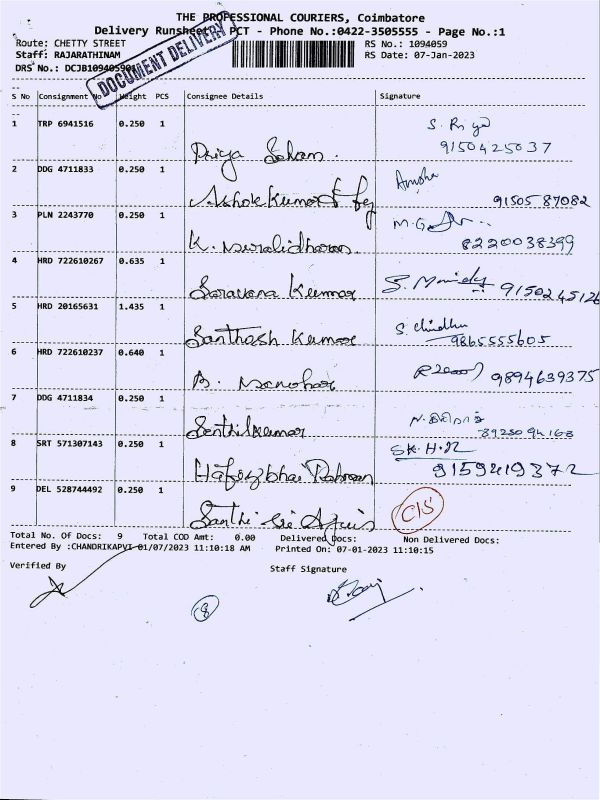 THE PROFESSIONAL COURIERS, Coimbatore
Delivery Runsheet PCT - Phone No.:0422-3505555 - Page No.:1
Route: CHETTY STREET
RS No.: 1094059
Staff: RAJARATHINAM
RS Date: 07-Jan-2023
DRS No.: DCJB109405901
DOCUMENT DELIVERY
S No Consignment No Weight PCS Consignee Details Signature
1 TRP 6941516 0.250 1 Priya Soham. S. Priya
9150425037
2 DDG 4711833 0.250 1 Ashok Kumar Amsha
9150587082
3 PLN 2243770 0.250 1 K. Muralidharan.
8220038399
4 HRD 722610267 0.635 1 Saravana Kumar 9150245126
5 HRD 20165631 1.435 1 Santhosh Kumar S. Chindhu
9865555605
6 HRD 722610237 0.640 1 B. Manohar 9894639375
7 DDG 4711834 0.250 1 Senthilkumar
8 SRT 571307143 0.250 1 Hafizbhai Rahman
9159419372
9 DEL 528744492 0.250 1 Santhi Sri CIS
Total No. Of Docs: 9 Total COD Amt: 0.00 Delivered Docs: Non Delivered Docs:
Entered By :CHANDRIKAPVI 01/07/2023 11:10:18 AM Printed On: 07-01-2023 11:10:15
Verified By
Staff Signature
8